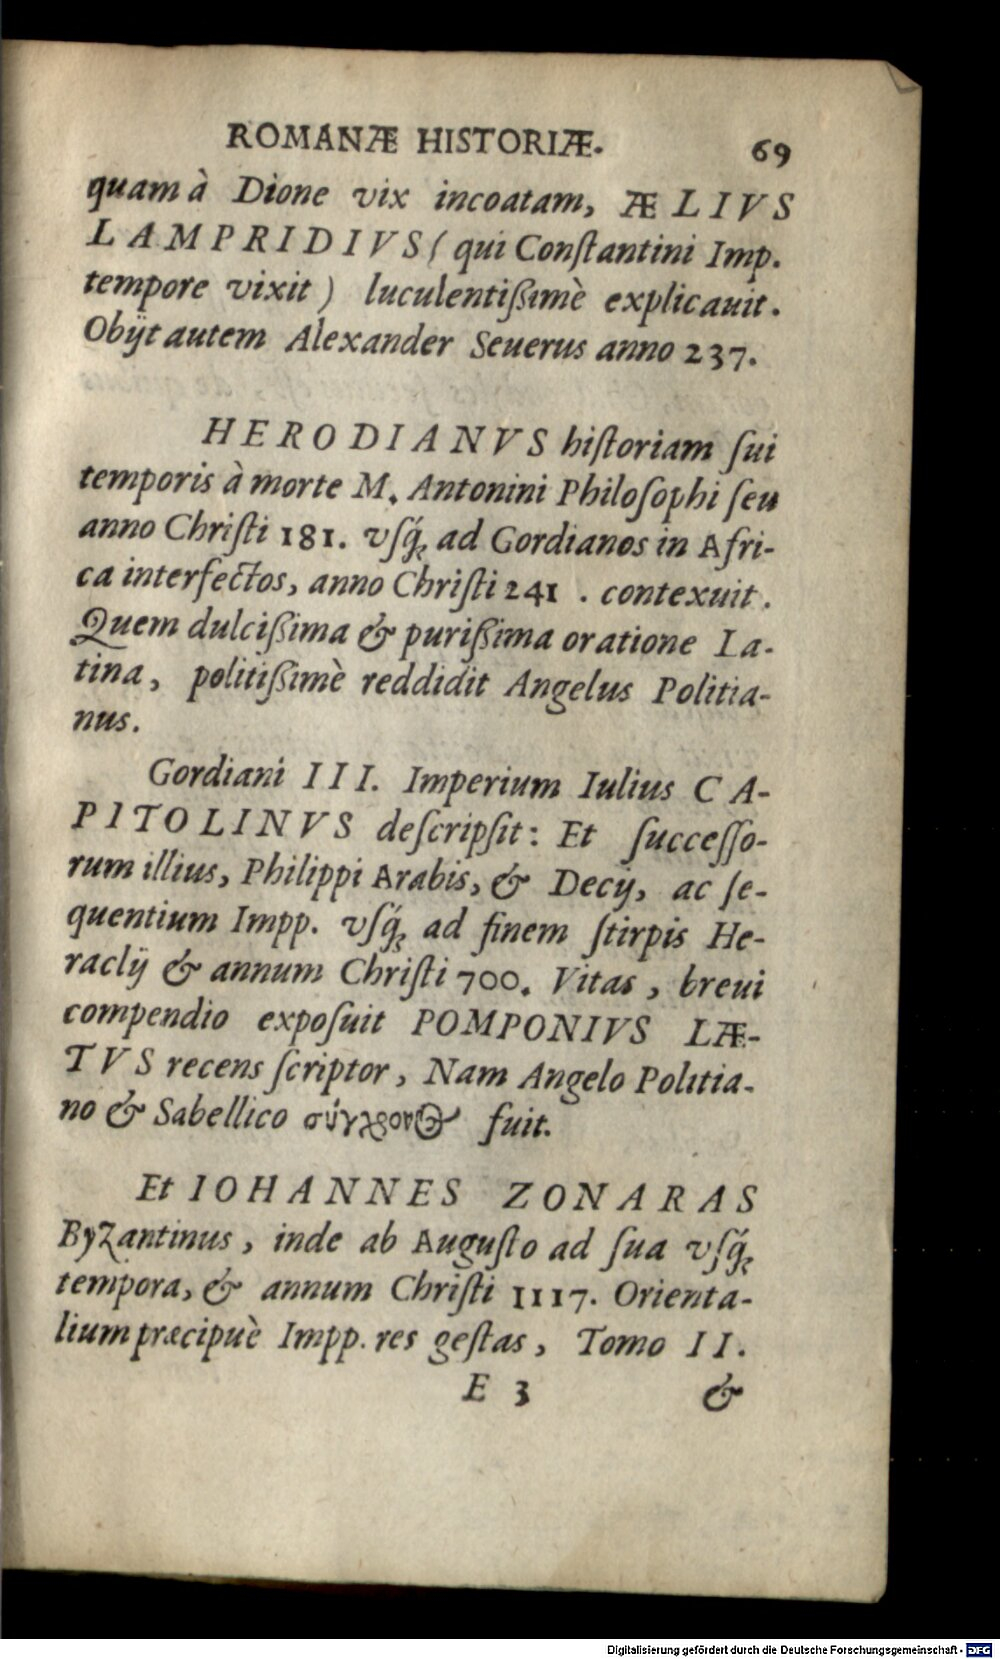 ROMANÆ HISTORIÆ. 69
quam à Dione vix incoatam, ÆLIVS
LAMPRIDIVS ( qui Conſtantini Imp.
tempore vixit ) luculentißimè explicauit.
Obijt autem Alexander Seuerus anno 237.
HERODIANVS hiſtoriam ſui
temporis à morte M. Antonini Philoſophi ſeu
anno Chriſti 181. vſq́; ad Gordianos in Afri-
ca interfectos, anno Chriſti 241 . contexuit.
Quem dulcißima & purißima oratione La-
tina, politißimè reddidit Angelus Politia-
nus.
Gordiani III. Imperium Iulius CA-
PITOLINVS deſcripſit: Et ſucceſſo-
rum illius, Philippi Arabis, & Decij, ac ſe-
quentium Impp. vſq́; ad finem ſtirpis He-
raclij & annum Chriſti 700. Vitas, breui
compendio expoſuit POMPONIVS LÆ-
TVS recens ſcriptor, Nam Angelo Politia-
no & Sabellico σύγχρονος fuit.
Et IOHANNES ZONARAS
Byzantinus, inde ab Auguſto ad ſua vſq́;
tempora, & annum Chriſti 1117. Orienta-
lium præcipuè Impp. res geſtas, Tomo II.
E 3 &
Digitalisierung gefördert durch die Deutsche Forschungsgemeinschaft - DFG